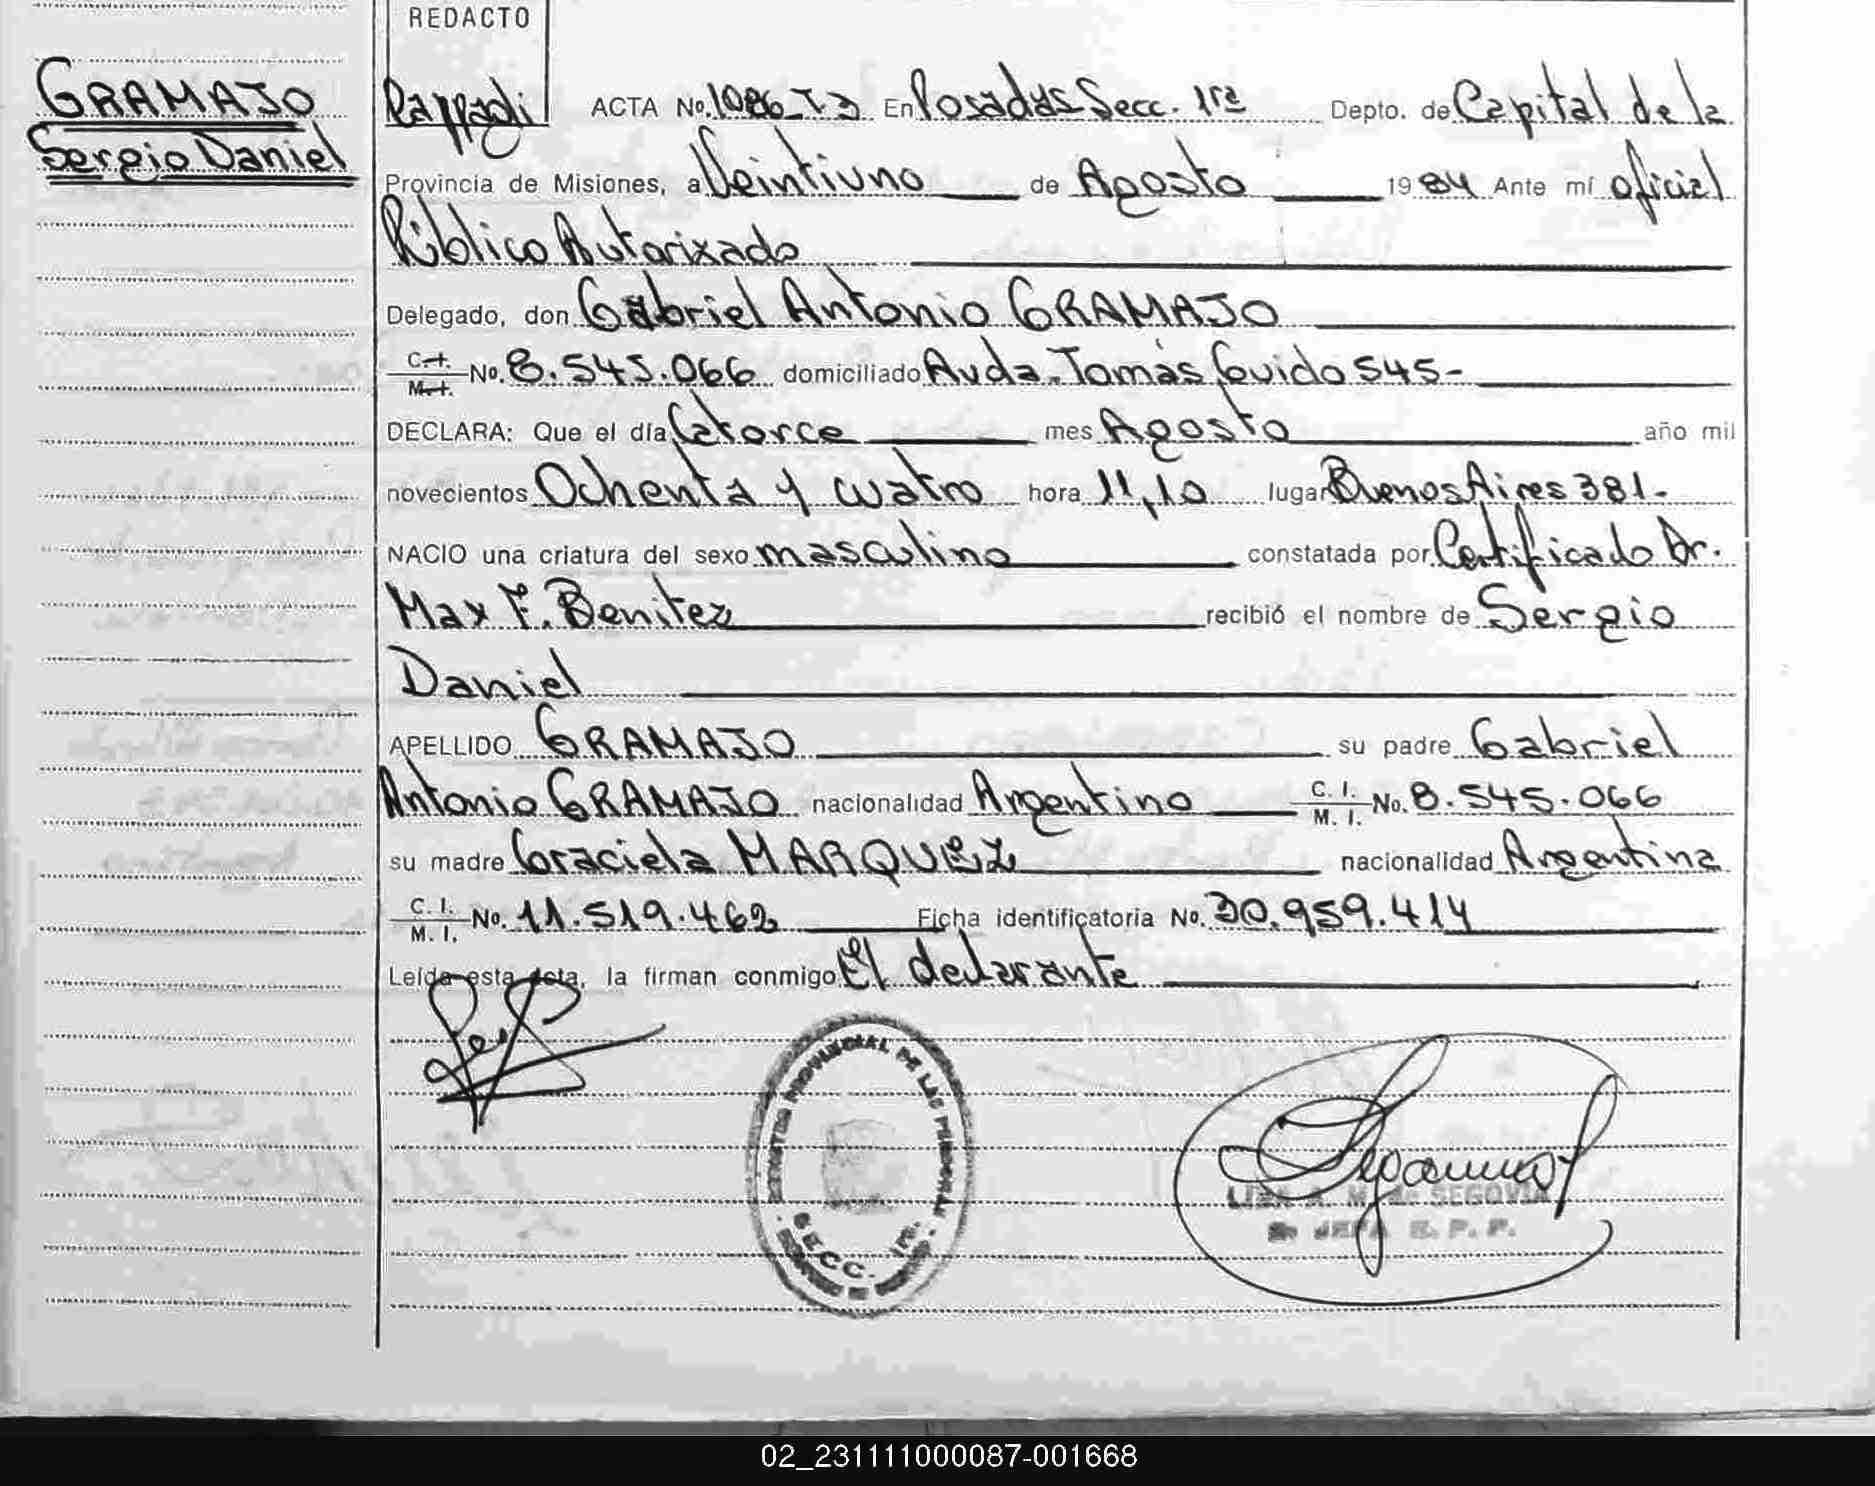 REDACTO
GRAMAJO
Sergio Daniel
ACTA No. 1086 T3 En Posadas Secc. 1ra Depto. de Capital de la
Provincia de Misiones, a Veintiuno de Agosto 1984 Ante mí oficial
Público Autorizado
Delegado, don Gabriel Antonio GRAMAJO
C.I. M.I. No. 8.545.066 domiciliado Avda. Tomás Guido 545-
DECLARA: Que el día Catorce mes Agosto año mil
novecientos Ochenta y cuatro hora 11,10 lugar Buenos Aires 381-
NACIO una criatura del sexo masculino constatada por Certificado Dr.
Max F. Benitez recibió el nombre de Sergio
Daniel
APELLIDO GRAMAJO su padre Gabriel
Antonio GRAMAJO nacionalidad Argentino C. I. M. I. No. 8.545.066
su madre Graciela MARQUEZ nacionalidad Argentina
C. I. M. I. No. 11.519.462 Ficha identificatoria No. 30.959.414
Leída esta acta, la firman conmigo El declarante
PROVINCIAL DE LAS PERSONAS
SECC. 1ra.
M. de SEGOVIA
JEFA E. P. P.
02_231111000087-001668